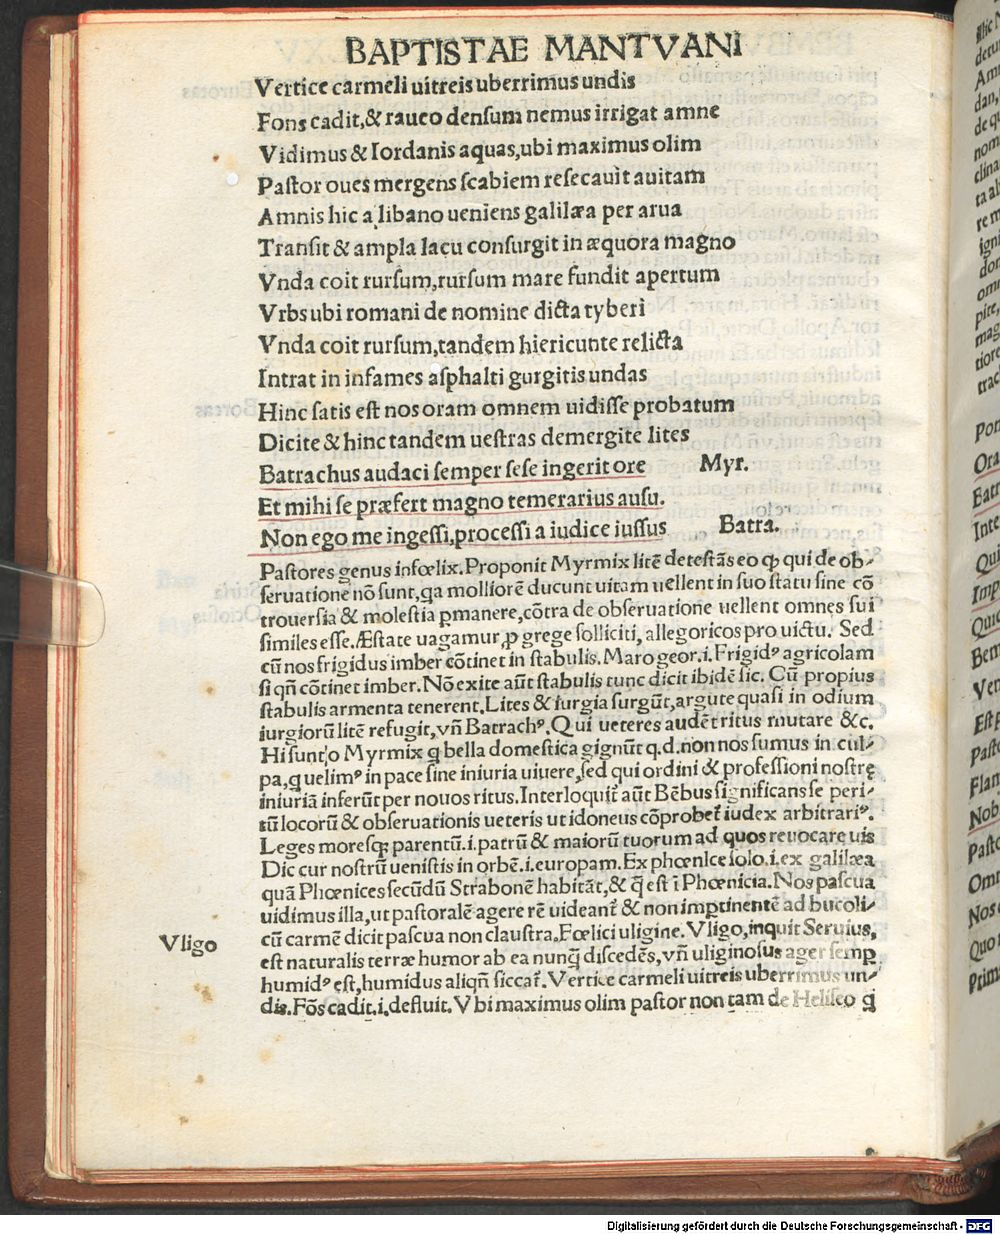 BAPTISTAE MANTVANI
Vertice carmeli uitreis uberrimus undis
Fons cadit,& rauco densum nemus irrigat amne
Vidimus & Iordanis aquas,ubi maximus olim
Pastor oues mergens scabiem resecauit auitam
Amnis hic a libano ueniens galilæa per arua
Transit & ampla lacu consurgit in æquora magno
Vnda coit rursum,rursum mare fundit apertum
Vrbs ubi romani de nomine dicta tyberi
Vnda coit rursum,tandem hiericunte relicta
Intrat in infames asphalti gurgitis undas
Hinc satis est nos oram omnem uidisse probatum
Dicite & hinc tandem uestras demergite lites
Batrachus audaci semper sese ingerit ore Myr.
Et mihi se præfert magno temerarius ausu.
Non ego me ingessi,processi a iudice iussus Batra.
Pastores genus infœlix. Proponit Myrmix litē detestās eo ꝙ qui de ob-
seruatione nō sunt,qa molliorē ducunt uitam uellent in suo statu sine cō
trouersia & molestia pmanere,cōtra de obseruatione uellent omnes sui
similes esse. Æstate uagamur, ꝓ grege solliciti, allegoricos pro uictu. Sed
cū nos frigidus imber cōtinet in stabulis. Maro geor.i. Frigidꝰ agricolam
si qn̄ cōtinet imber. Nō exite aūt stabulis tunc dicit ibidē sic. Cū propius
stabulis armenta tenerent. Lites & iurgia surgūt, argute quasi in odium
iurgiorū litē refugit, vn̄ Batrachꝰ. Qui ueteres audēt ritus mutare &c.
Hi sunt,o Myrmix q bella domestica gignūt q.d.non nos sumus in cul-
pa,q uelimꝰ in pace sine iniuria uiuere,sed qui ordini & professioni nostrę
iniuriā inferūt per nouos ritus. Interloquit̃ aūt Bēbus significans se peri-
tū locorū & obseruationis ueteris ut idoneus cōprobet̃ iudex arbitrariꝰ.
Leges moresq; parentū.i.patrū & maiorū tuorum ad quos reuocare uis
Dic cur nostrū uenistis in orbē.i.europam. Ex phœnice solo.i.ex galilæa
quā Phœnices secūdū Strabonē habitāt,& q̄ est ī Phœnicia. Nos pascua
uidimus illa,ut pastoralē agere rē uideant̃ & non imptinentē ad bucoli-
cū carmē dicit pascua non claustra. Fœlici uligine. Vligo,inquit Seruius,
Vligo
est naturalis terræ humor ab ea nunq̄ discedēs, vn̄ uliginosus ager semp
humidꝰ est,humidus aliqn̄ siccat̃. Vertice carmeli uitreis uberrimus un-
dis. Fōs cadit.i.defluit. Vbi maximus olim pastor non tam de Heliseo q̄
Digitalisierung gefördert durch die Deutsche Forschungsgemeinschaft - DFG